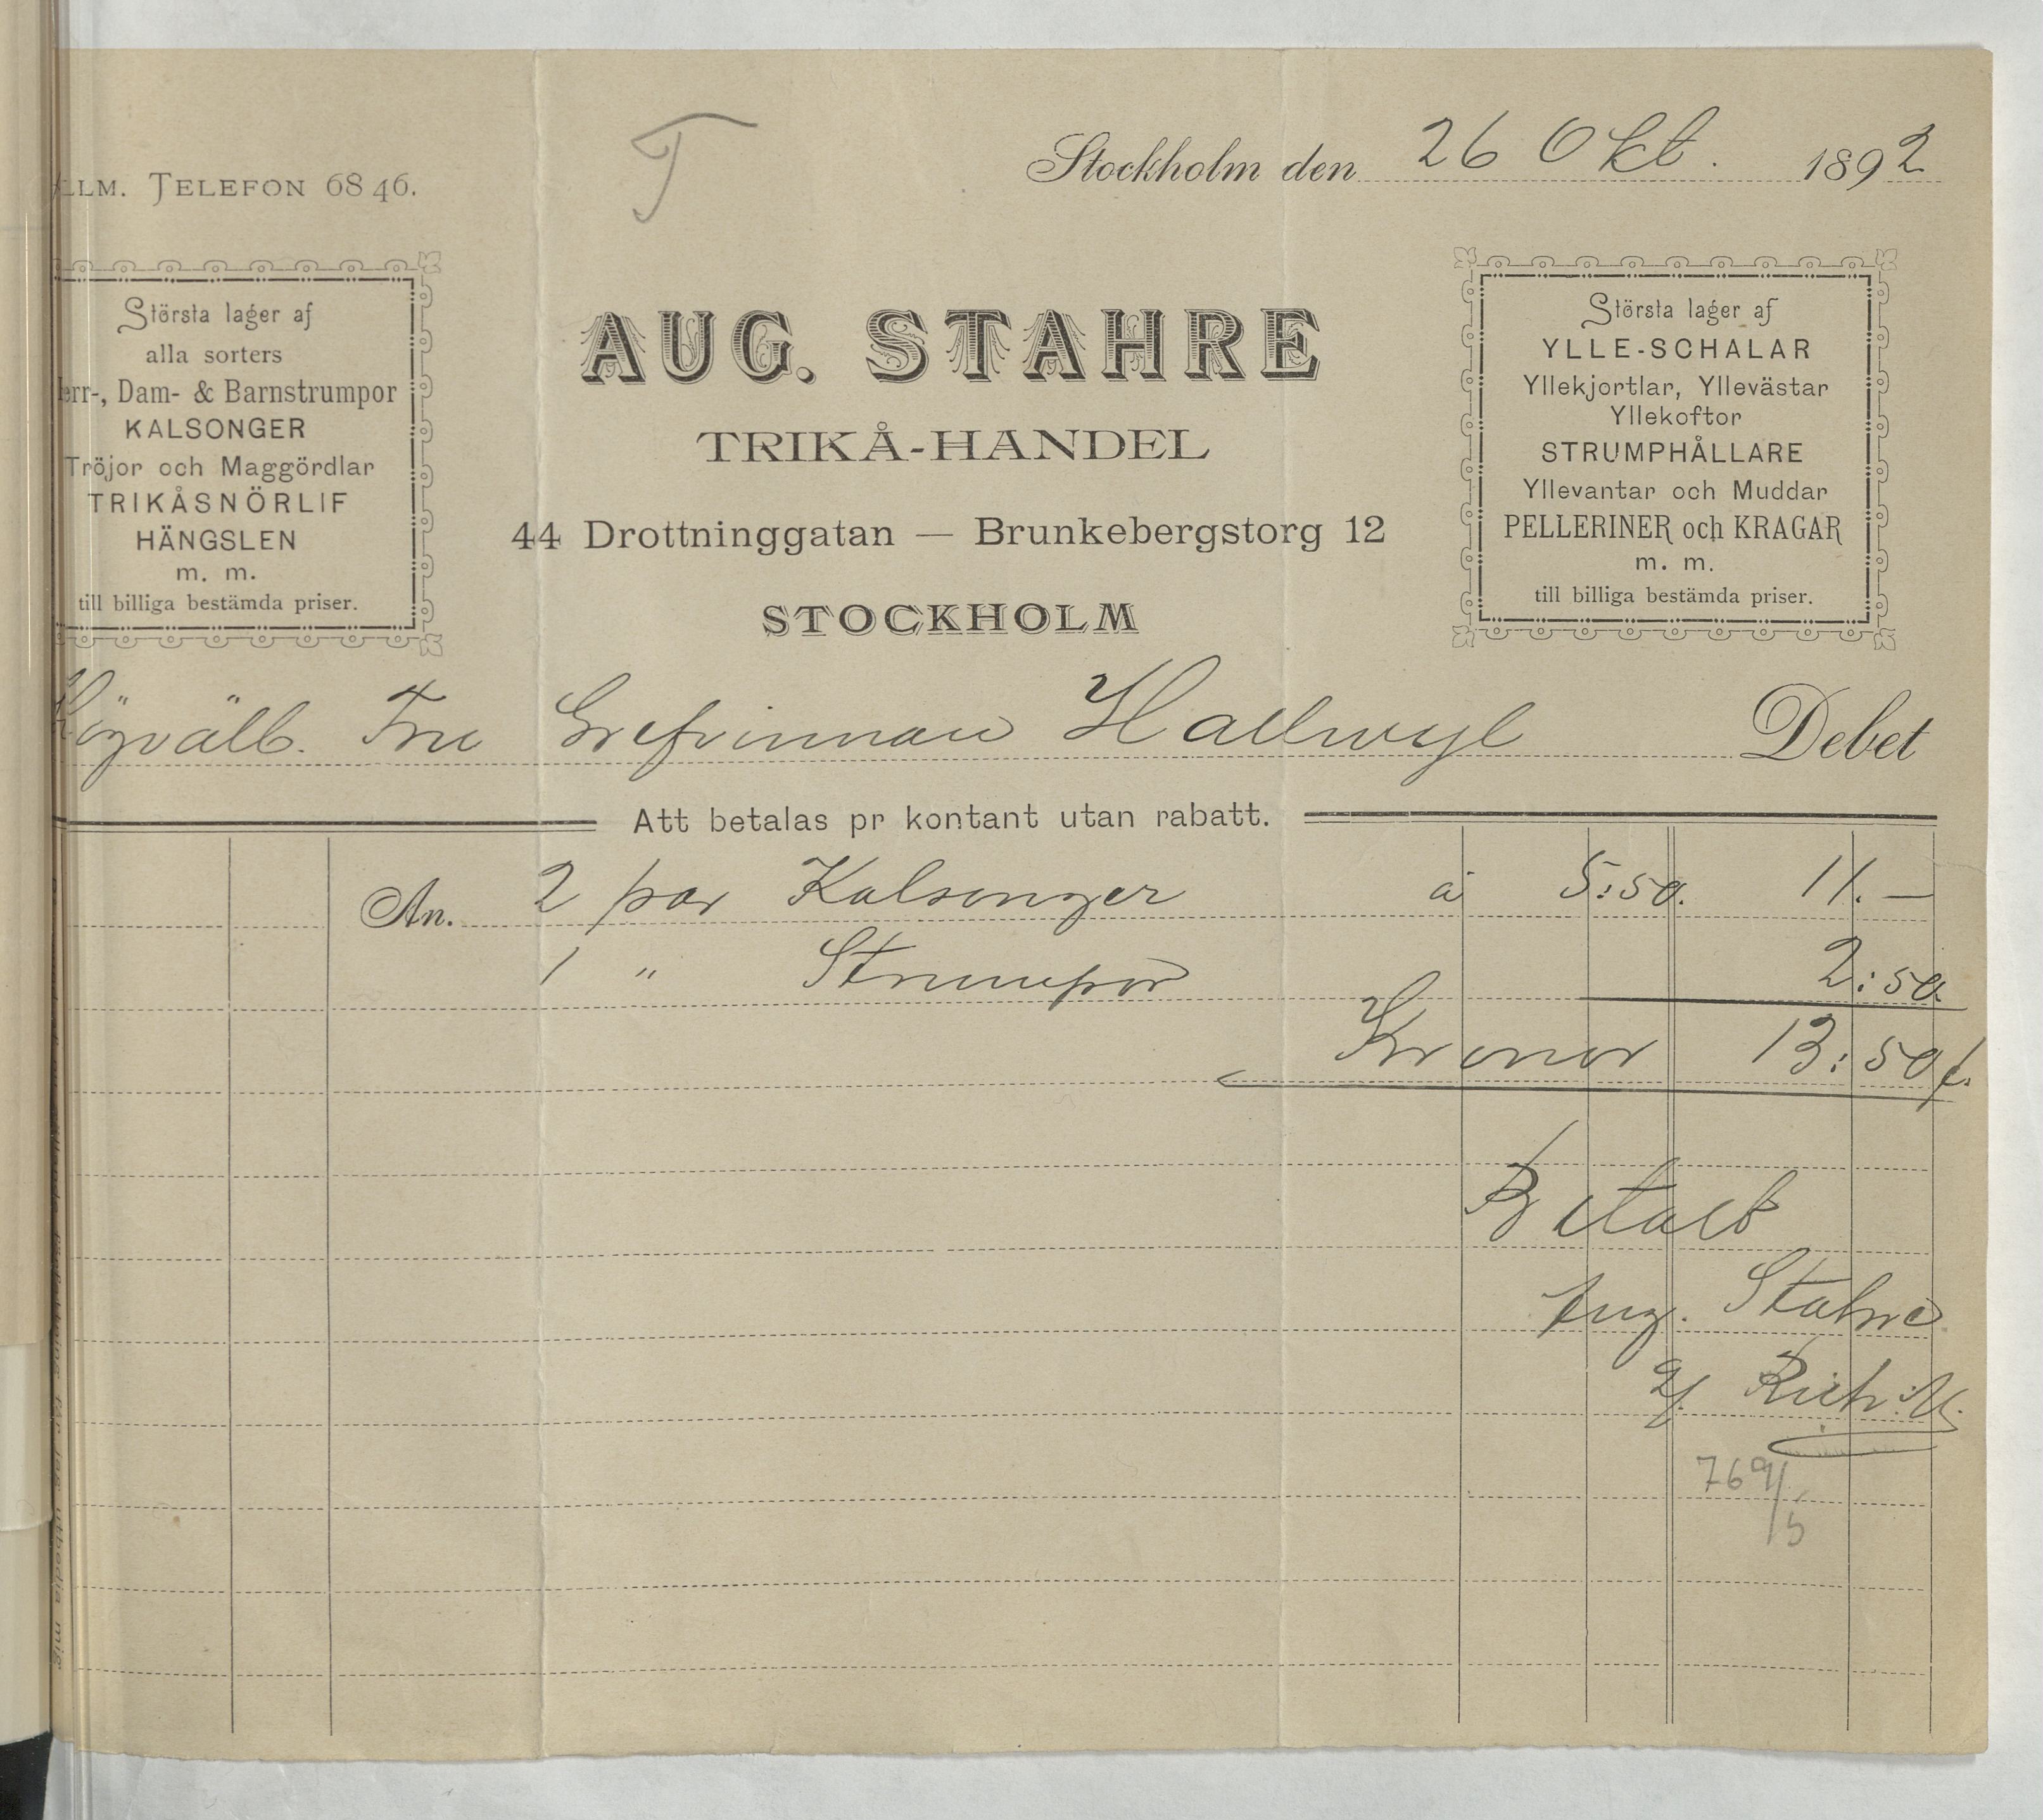 T
Stockholm den 26 Okt. 1892
LLM. TELEFON 6846.
Största lager af
alla sorters
Herr-, Dam- & Barnstrumpor
KALSONGER
Tröjor och Maggördlar
TRIKÅSNÖRLIF
HÄNGSLEN
m. m.
till billiga bestämda priser.
AUG. STAHRE
TRIKÅ-HANDEL
44 Drottninggatan — Brunkebergstorg 12
STOCKHOLM
Största lager af
YLLE-SCHALAR
Yllekjortlar, Yllevästar
Yllekoftor
STRUMPHÅLLARE
Yllevantar och Muddar
PELLERINER och KRAGAR
m. m.
till billiga bestämda priser.
Högvälb. Fru Grefvinnan Hallwyl Debet
Att betalas pr kontant utan rabatt.
An. 2 par Kalsonger à 5:50. 11.—
1 " Strumpor 2:50.
Kronor 13:50
Betalt
Aug. Stahre
g/ Rich. 
769/5